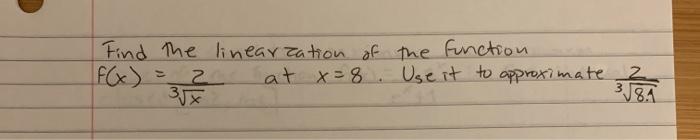 Find the linearzation of the function
f(x) = 2/∛x at x=8. Use it to approximate 2/∛8.1